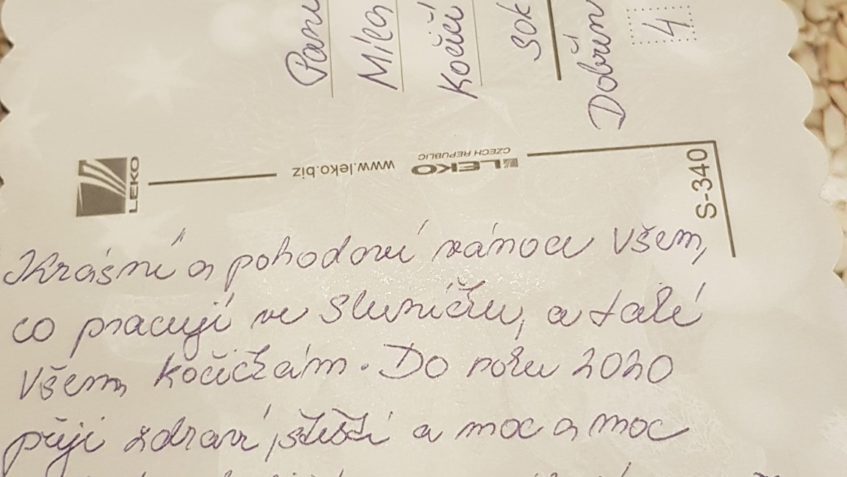 Paní
Míla
Kočičí
30k
Dobřín
4
LEKO
www.leko.biz
LEKO
CZECH REPUBLIC
S-340
Krásné a pohodové vánoce všem,
co pracují ve Sluníčku, a také
všem kočičkám. Do roku 2020
přeji zdraví, štěstí a moc a moc